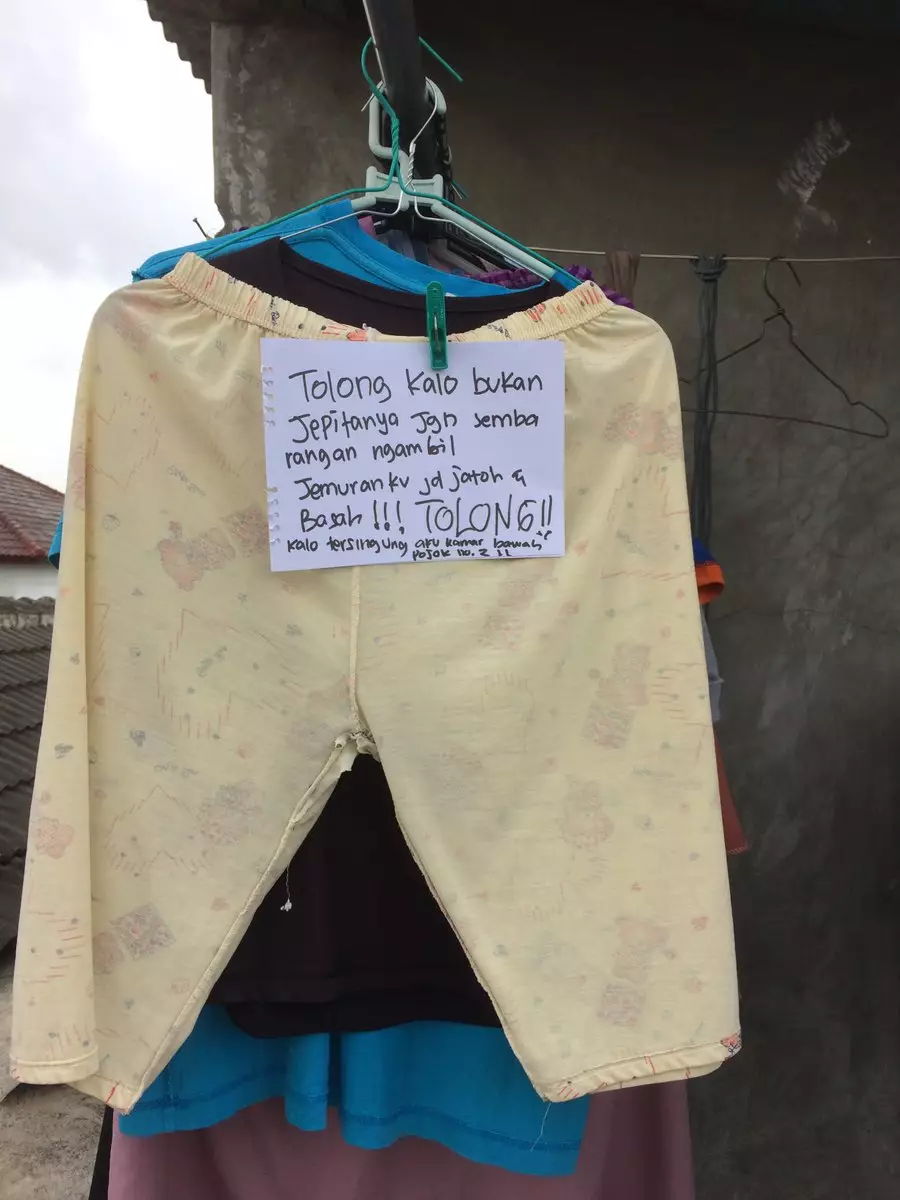 Tolong kalo bukan
Jepitanya Jgn semba
rangan ngambil
Jemuranku jd jatoh &
Basah !!! TOLONG!!
kalo tersingung aku kamar bawah
pojok no. 2 !!